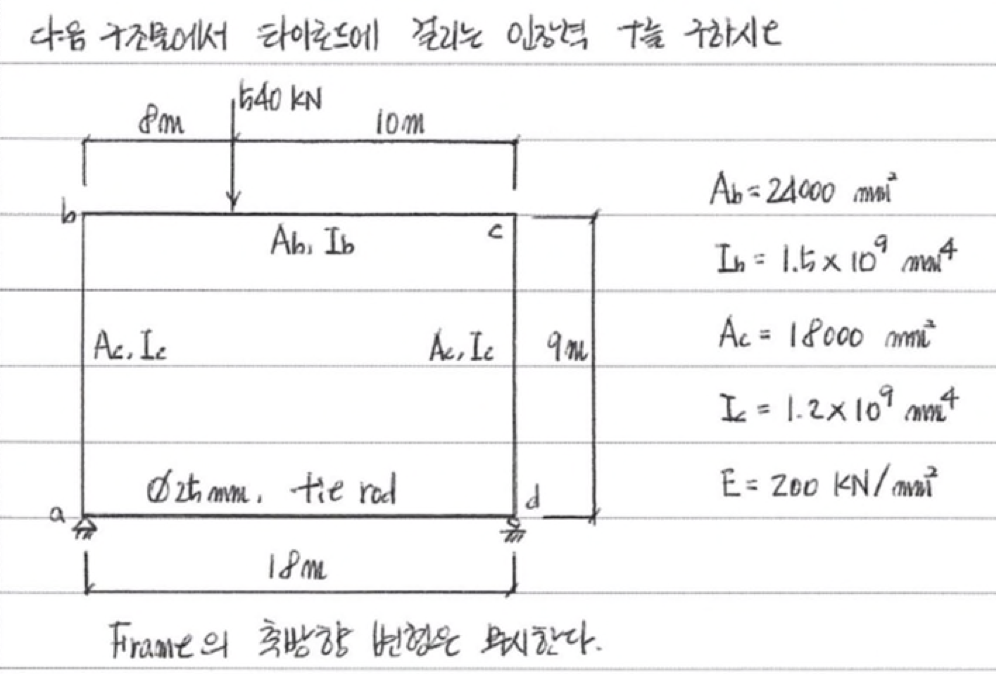 다음 구조물에서 타이로드에 걸리는 인장력 T를 구하시오
540 kN
8m 10m
b c
Ab, Ib
Ac, Ic Ac, Ic 9m
Ø25mm, tie rod
a d
18m
Ab = 24000 mm²
Ib = 1.5 × 10⁹ mm⁴
Ac = 18000 mm²
Ic = 1.2 × 10⁹ mm⁴
E = 200 KN/mm²
Frame의 축방향 변형은 무시한다.